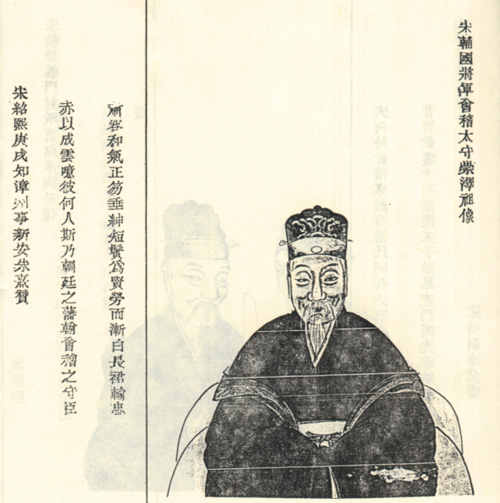 宋輔國將軍會稽太守榮澤祖像
容和氣正笏垂紳短鬢爲賢勞而漸白長裙輸忠
赤以成雲噫彼何人斯乃朝廷之藩翰會稽之守臣
宋紹熙庚戌知漳州事新安朱熹贊